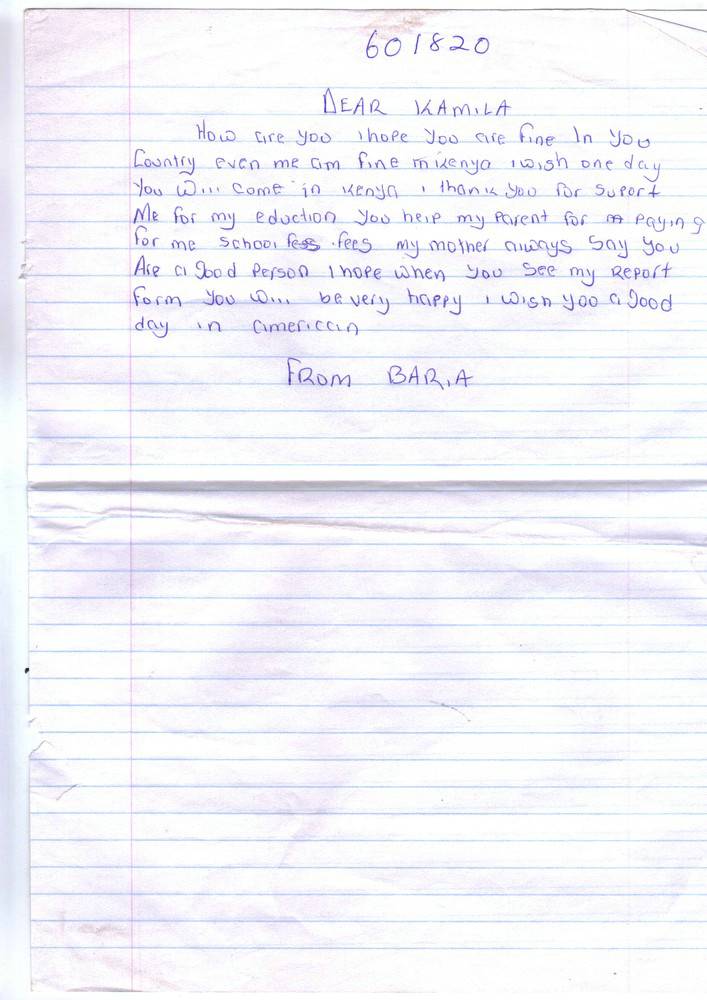 601820
DEAR KAMILA
How are you i hope you are fine In you
Country even me am fine in kenya i wish one day
You Will come in kenya i thank you for suport
Me for my eduction you help my parent for paying
for me school fees my mother always say you
Are a good person i hope when you see my report
form you will be very happy i wish you a good
day in americcin
FROM BARIA